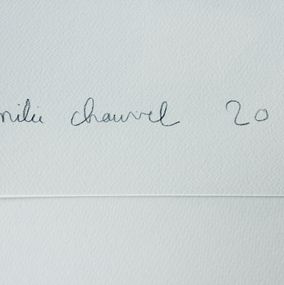 milie chauvel 20